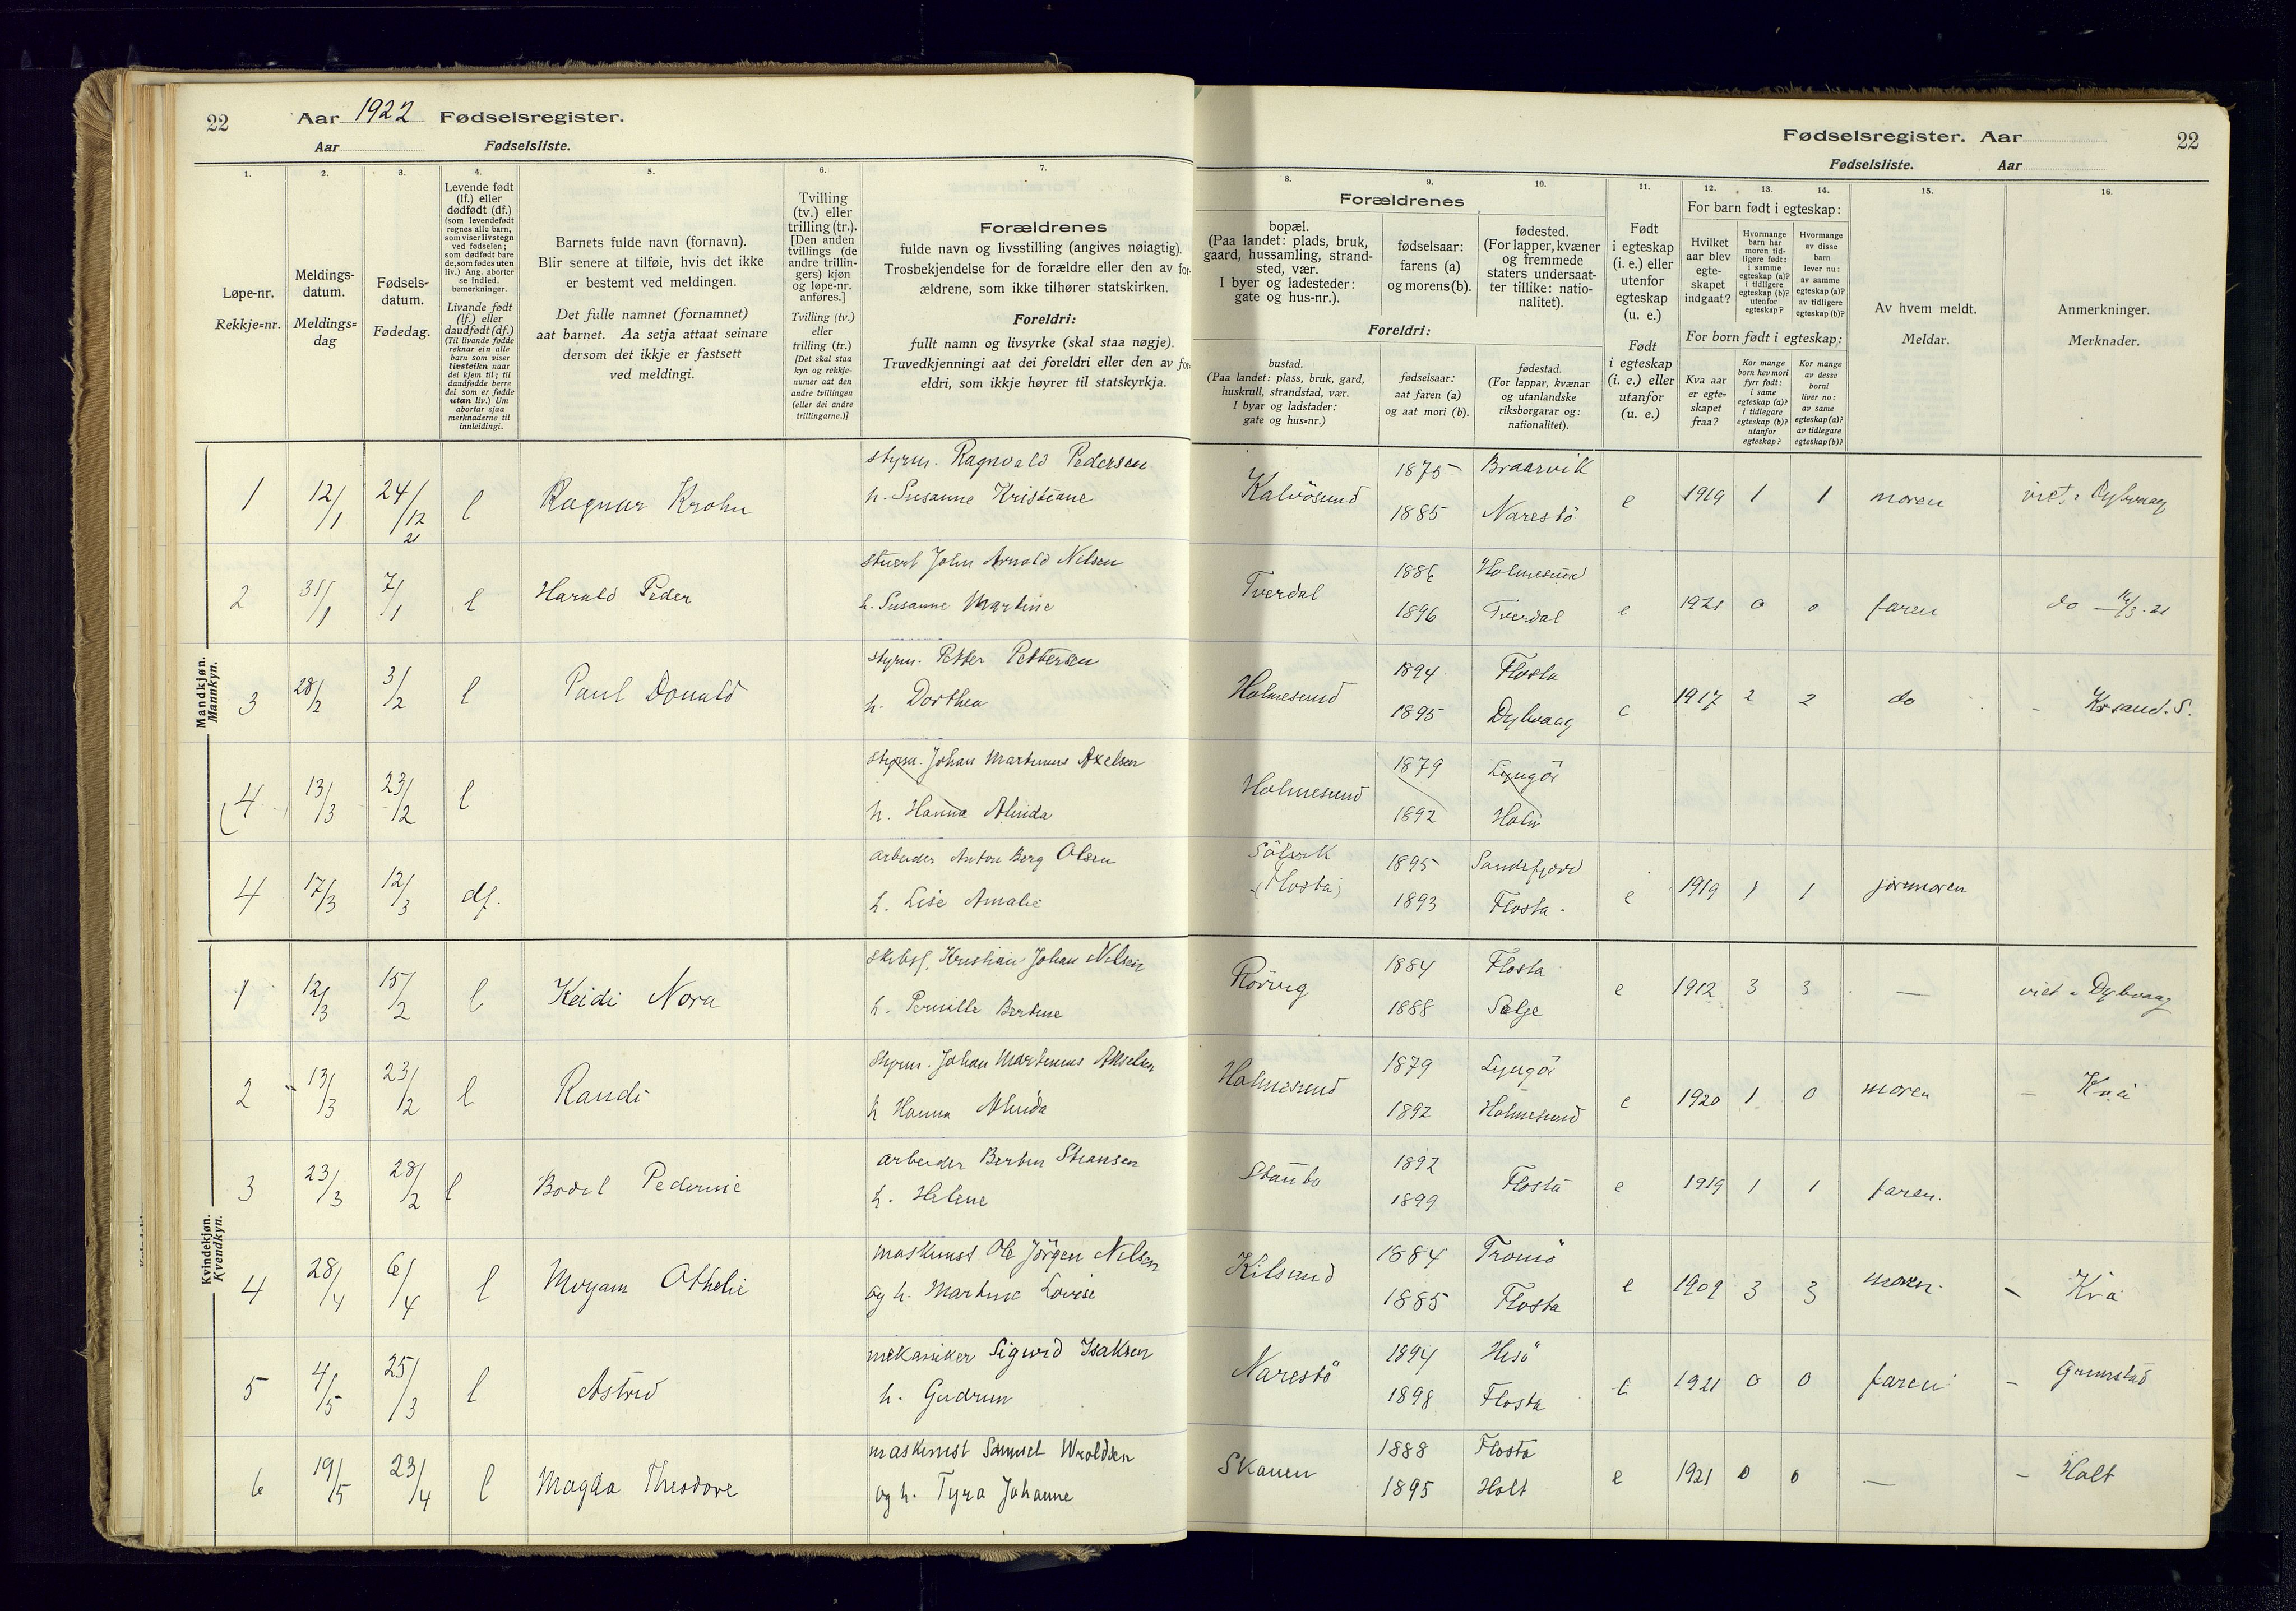 22
Aar 1922 Fødselsregister.
Aar Fødselsliste.
Fødselsregister. Aar
22
Fødselsliste. Aar
1. 2. 3. 4. 5. 6. 7. 8. 9. 10. 11. 12. 13. 14. 15. 16.
Løpe-nr.
Rekkje=nr.
Meldings-
datum.
Meldings=
dag
Fødsels-
datum.
Fødedag.
Levende født
(lf.) eller
dødfødt (df.)
(som levendefødt
regnes alle barn,
som viser livstegn
ved fødselen;
som dødfødt bare
de, som fødes uten
liv.) Ang. aborter
se indled.
bemerkninger.
Livande født
(lf.) eller
daudfødt (df.)
(Til livande fødde
reknar ein alle
barn som viser
livsteikn naar
dei kjem til; til
daudfødde berre
dei som er fødde
utan liv.) Um
abortar sjaa
merknaderne til
innleidingi.
Barnets fulde navn (fornavn).
Blir senere at tilføie, hvis det ikke
er bestemt ved meldingen.
Det fulle namnet (fornamnet)
aat barnet. Aa setja attaat seinare
dersom det ikkje er fastsett
ved meldingi.
Tvilling
(tv.) eller
trilling (tr.).
[Den anden
tvillings (de
andre trillin-
gers) kjøn
og løpe-nr.
anføres.]
Tvilling (tv.)
eller
trilling (tr.)
[Det skal staa
kyn og rekkje-
numer aat den
andre tvillingen
(eller dei andre
trillingarne.)]
Forældrenes
fulde navn og livsstilling (angives nøiagtig).
Trosbekjendelse for de forældre eller den av for-
ældrene, som ikke tilhører statskirken.
Foreldri:
fullt namn og livsyrke (skal staa nøgje).
Truvedkjenningi aat dei foreldri eller den av for-
eldri, som ikkje høyrer til statskyrkja.
Forældrenes
bopæl.
(Paa landet: plads, bruk,
gaard, hussamling, strand-
sted, vær.
I byer og ladesteder:
gate og hus-nr.).
fødselsaar:
farens (a)
og morens (b).
fødested.
(For lapper, kvæner
og fremmede
staters undersaat-
ter tillike: natio-
nalitet).
Foreldri:
bustad.
(Paa landet: plass, bruk, gard,
huskrull, strandstad, vær.
I byar og ladstader:
gate og hus=nr.)
fødselsaar:
aat faren (a)
og aat mori (b).
fødestad.
(For lappar, kvænar
og utanlandske
riksborgarar og:
nationalitet).
Født
i egteskap
(i. e.) eller
utenfor
egteskap
(u. e.)
Født
i egteskap
(i. e.) eller
utanfor
(u. e.)
For barn født i egteskap:
Hvilket
aar blev
egte-
skapet
indgaat?
Hvormange
barn har
moren tid-
ligere født:
i samme
egteskap (a)?
i tidligere
egteskap (b)?
utenfor
egteskap?
Hvormange
av disse
barn
lever nu:
av samme
egteskap (a)?
av tidligere
egteskap (b)?
For born født i egteskap:
Kva aar
er egte=
skapet
fraa?
Kor mange
born hev mori
fyrr født:
i same
egteskap (a)?
i tidlegare
egteskap (b)?
utanfor
egteskap?
Kor mange
av desse
borni
liver no:
av same
egteskap (a)?
av tidlegare
egteskap (b)?
Av hvem meldt.
Meldar.
Anmerkninger.
Merknader.
Mandkjøn.
Mannkyn.
1 12/1 24/12 21 l Ragnar Krohn styrm. Ragnvald Pedersen Kalvösund 1875 Braarvik e 1919 1 1 moren viet i Dybvaag
h. Susanne Kristiane 1885 Narestö
2 31/1 7/1 l Harald Peder stuert John Arnold Nilsen Tverdal 1886 Holmesund e 1921 0 0 faren do
h. Susanne Martine 1896 Tverdal
3 28/2 3/2 l Paul Donald styrm. Petter Pettersen Holmesund 1894 Flosta e 1917 2 2 do - Krsand. S.
h. Dorthea 1895 Dybvaag
(4) 13/3 23/2 l styrm. Johan Martinius Axelsen Holmesund 1879 Lyngör
h. Hanna Alvida 1892 Holm
4 17/3 12/3 df. arbeider Anton Berg Olsen (Flosta) 1895 Sandefjord e 1919 1 1 jormoren
h. Lise Amalie 1893 Flosta
Kvindekjøn.
Kvendkyn.
1 12/3 15/2 l Keidi Nora skibsf. Kristian Johan Nilsen Rörvig 1884 Flosta e 1912 3 3 — viet i Dybvaag
h. Pernille Bertine 1888 Selje
2 13/3 23/2 l Randi styrm. Johan Martinius Akselsen Holmesund 1879 Lyngör e 1920 1 0 moren
h Hanna Alvida 1892 Holmesund
3 23/3 28/2 l Bodil Pedernie arbeider Bertin Steansen Staubo 1892 Flosta e 1919 1 1 faren.
h. Helene 1899
4 28/4 6/4 l Myriam Othelie maskinist Ole Jörgen Nilsen Kilsund 1884 Tromö e 1909 3 3 moren
og h. Martine Lovise 1885 Flosta
5 4/5 25/3 l Astrid mekaniker Sigurd Isaksen Narestö 1894 Hisö e 1921 0 0 faren - Grimstad
h. Gudrun 1898 Flosta
6 19/5 23/4 l Magda Theodore maskinist Samuel Wroldsen Skauen 1888 Flosta e 1921 0 0 — - Holt
og h. Tyra Johanne 1895 Holt